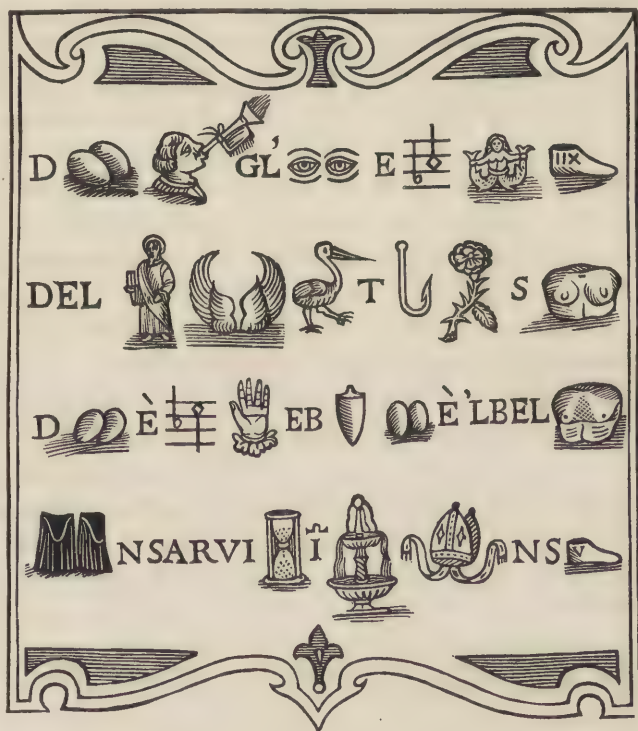 D GL' E IIX
DEL T S
D È EB È 'LBEL
NSARVI Ĩ NS V